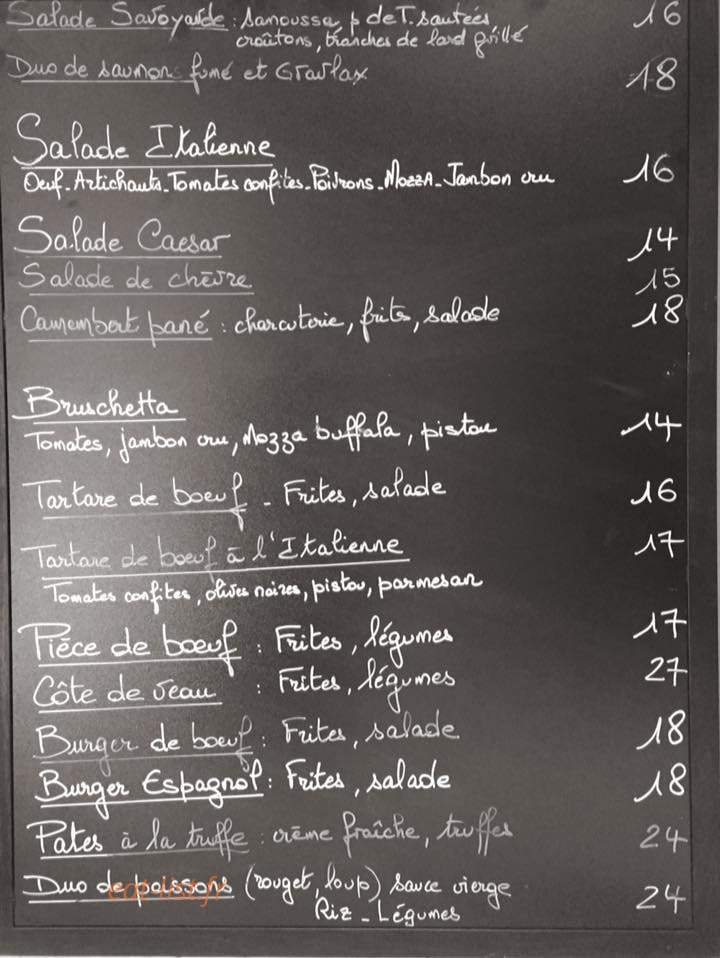 Salade Savoyarde : Samoussa, p de T. sautées, 16
croûtons, tranches de lard grillé
Duo de saumons fumé et Gravlax 18
Salade Italienne
Oeuf - Artichauts - Tomates confites - Poivrons - Mozza - Jambon cru 16
Salade Caesar 14
Salade de chèvre 15
Camembert pané : charcuterie, frites, salade 18
Bruschetta
Tomates, jambon cru, Mozza buffala, pistou 14
Tartare de boeuf - Frites, salade 16
Tartare de boeuf à l'Italienne 17
Tomates confites, olives noires, pistou, parmesan
Pièce de boeuf : Frites, légumes 17
Côte de veau : Frites, légumes 27
Burger de boeuf : Frites, salade 18
Burger Espagnol : Frites, salade 18
Pates à la truffe : crème fraîche, truffes 24
Duo de poissons (rouget, loup) sauce vierge 24
Riz - Légumes
eat-list.fr